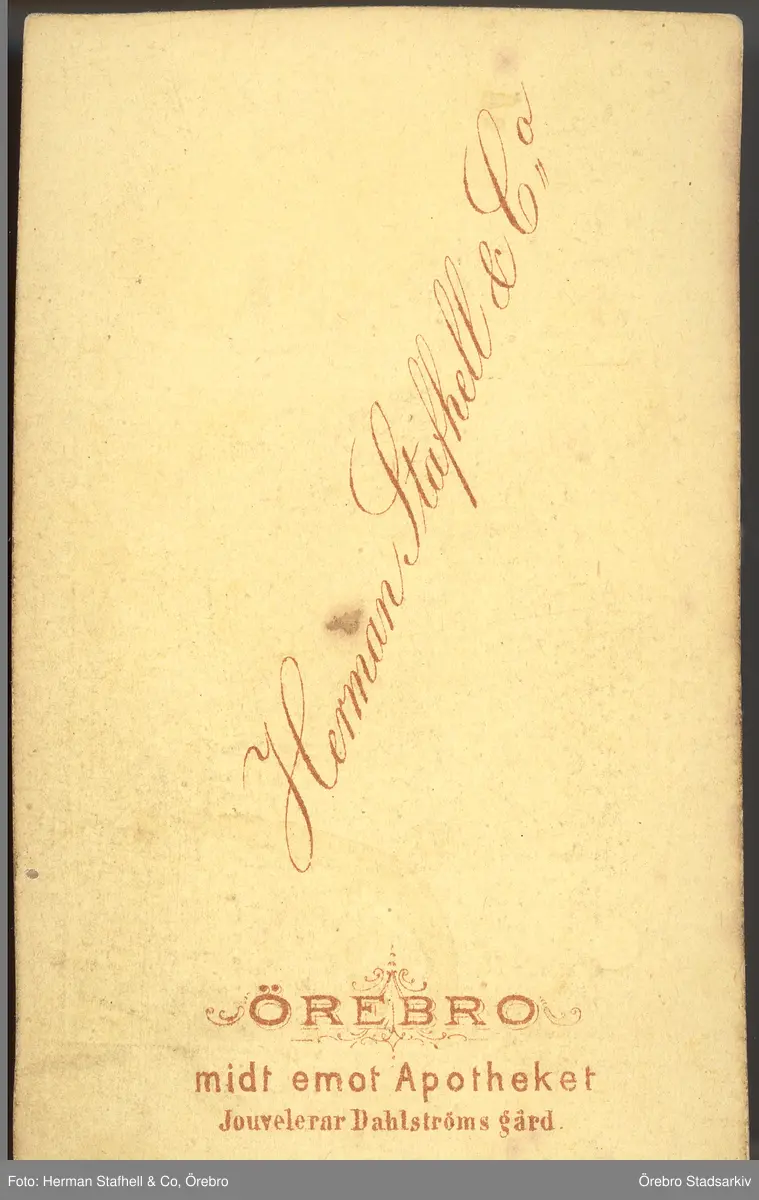 Herman Stafhell & C,,o
ÖREBRO
midt emot Apotheket
Jouvelerar Dahlströms gård.
Foto: Herman Stafhell & Co, Örebro
Örebro Stadsarkiv